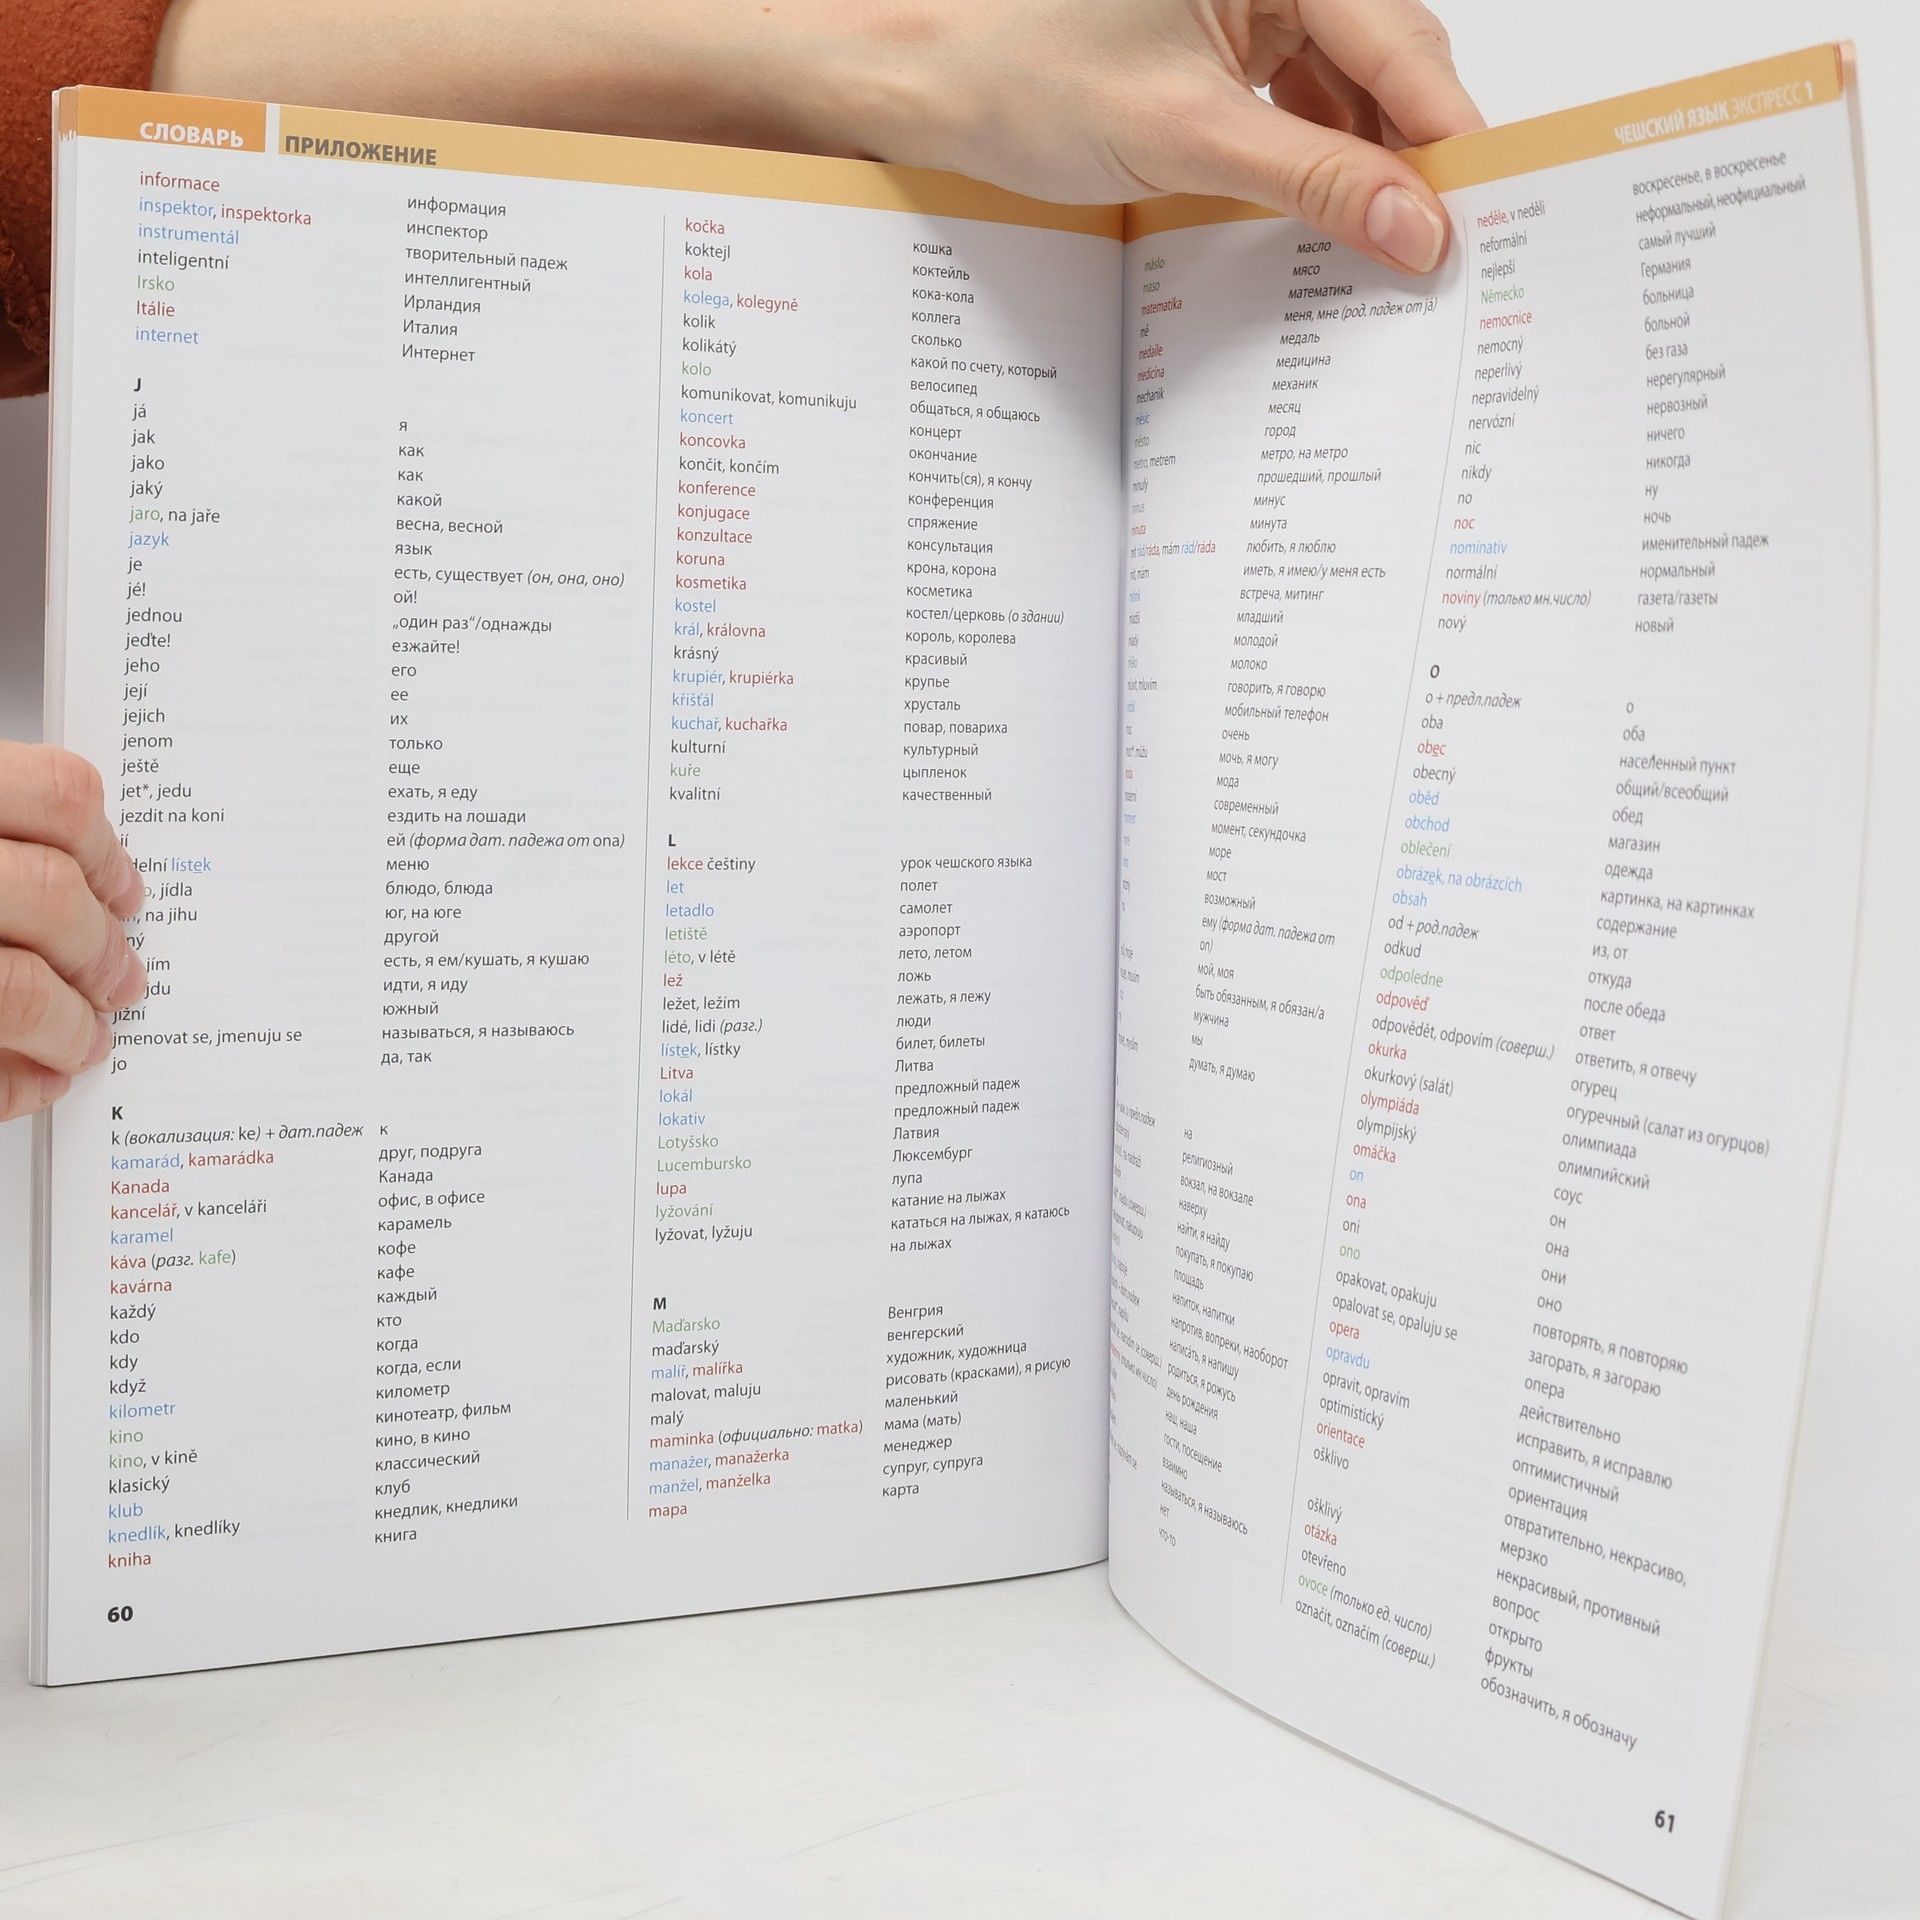 СЛОВАРЬ ПРИЛОЖЕНИЕ
informace информация
inspektor, inspektorka инспектор
instrumentál творительный падеж
inteligentní интеллигентный
Irsko Ирландия
Itálie Италия
internet Интернет
J
já я
jak как
jako как
jaký какой
jaro, na jaře весна, весной
jazyk язык
je есть, существует (он, она, оно)
jé! ой!
jednou „один раз“/однажды
jeďte! езжайте!
jeho его
její ее
jejich их
jenom только
ještě еще
jet*, jedu ехать, я еду
jezdit na koni ездить на лошади
jí ей (форма дат. падежа от ona)
lístek меню
jídla блюдо, блюда
na jihu юг, на юге
другой
jím есть, я ем/кушать, я кушаю
jdu идти, я иду
jižní южный
jmenovat se, jmenuju se называться, я называюсь
jo да, так
K
k (вокализация: ke) + дат.падеж к
kamarád, kamarádka друг, подруга
Kanada Канада
kancelář, v kanceláři офис, в офисе
karamel карамель
káva (разг. kafe) кофе
kavárna кафе
každý каждый
kdo кто
kdy когда
když когда, если
kilometr километр
kino кинотеатр, фильм
kino, v kině кино, в кино
klasický классический
klub клуб
knedlík, knedlíky кнедлик, кнедлики
kniha книга
kočka кошка
koktejl коктейль
kola кока-кола
kolega, kolegyně коллега
kolik сколько
kolikátý какой по счету, который
kolo велосипед
komunikovat, komunikuju общаться, я общаюсь
koncert концерт
koncovka окончание
končit, končím кончить(ся), я кончу
konference конференция
konjugace спряжение
konzultace консультация
koruna крона, корона
kosmetika косметика
kostel костел/церковь (о здании)
král, královna король, королева
krásný красивый
krupiér, krupiérka крупье
křišťál хрусталь
kuchař, kuchařka повар, повариха
kulturní культурный
kuře цыпленок
kvalitní качественный
L
lekce češtiny урок чешского языка
let полет
letadlo самолет
letiště аэропорт
léto, v létě лето, летом
lež ложь
ležet, ležím лежать, я лежу
lidé, lidi (разг.) люди
lístek, lístky билет, билеты
Litva Литва
lokál предложный падеж
lokativ предложный падеж
Lotyšsko Латвия
Lucembursko Люксембург
lupa лупа
lyžování катание на лыжах
lyžovat, lyžuju кататься на лыжах, я катаюсь
на лыжах
M
Maďarsko Венгрия
maďarský венгерский
malíř, malířka художник, художница
malovat, maluju рисовать (красками), я рисую
malý маленький
maminka (официально: matka) мама (мать)
manažer, manažerka менеджер
manžel, manželka супруг, супруга
mapa карта
60
ЧЕШСКИЙ ЯЗЫК ЭКСПРЕСС 1
máslo масло
maso мясо
matematika математика
mě меня, мне (род. падеж от já)
medaile медаль
medicína медицина
mechanik механик
měsíc месяц
město город
metro, metrem метро, на метро
minulý прошедший, прошлый
minus минус
minuta минута
mít rád/ráda, mám rád/ráda любить, я люблю
mít, mám иметь, я имею/у меня есть
встреча, митинг
младший
молодой
молоко
mluvit, mluvím говорить, я говорю
мобильный телефон
очень
мочь, я могу
мода
современный
момент, секундочка
море
мост
возможный
ему (форма дат. падежа от
on)
мой, моя
быть обязанным, я обязан/а
мужчина
мы
думать, я думаю
на
религиозный
вокзал, на вокзале
наверху
найти, я найду
покупать, я покупаю
площадь
напиток, напитки
напротив, вопреки, наоборот
написать, я напишу
родиться, я рожусь
день рождения
наш, наша
гости, посещение
взаимно
называться, я называюсь
нет
что-то
neděle, v neděli воскресенье, в воскресенье
neformální неформальный, неофициальный
nejlepší самый лучший
Německo Германия
nemocnice больница
nemocný больной
neperlivý без газа
nepravidelný нерегулярный
nervózní нервозный
nic ничего
nikdy никогда
no ну
noc ночь
nominativ именительный падеж
normální нормальный
noviny (только мн.число) газета/газеты
nový новый
O
o + предл.падеж о
oba оба
obec населенный пункт
obecný общий/всеобщий
oběd обед
obchod магазин
oblečení одежда
obrázek, na obrázcích картинка, на картинках
obsah содержание
od + род.падеж из, от
odkud откуда
odpoledne после обеда
odpověď ответ
odpovědět, odpovím (соверш.) ответить, я отвечу
okurka огурец
okurkový (salát) огуречный (салат из огурцов)
olympiáda олимпиада
olympijský олимпийский
omáčka соус
on он
ona она
oni они
ono оно
opakovat, opakuju повторять, я повторяю
opalovat se, opaluju se загорать, я загораю
opera опера
opravdu действительно
opravit, opravím исправить, я исправлю
optimistický оптимистичный
orientace ориентация
ošklivo отвратительно, некрасиво,
мерзко
ošklivý некрасивый, противный
otázka вопрос
otevřeno открыто
ovoce (только ед. число) фрукты
označit, označím (соверш.) обозначить, я обозначу
61